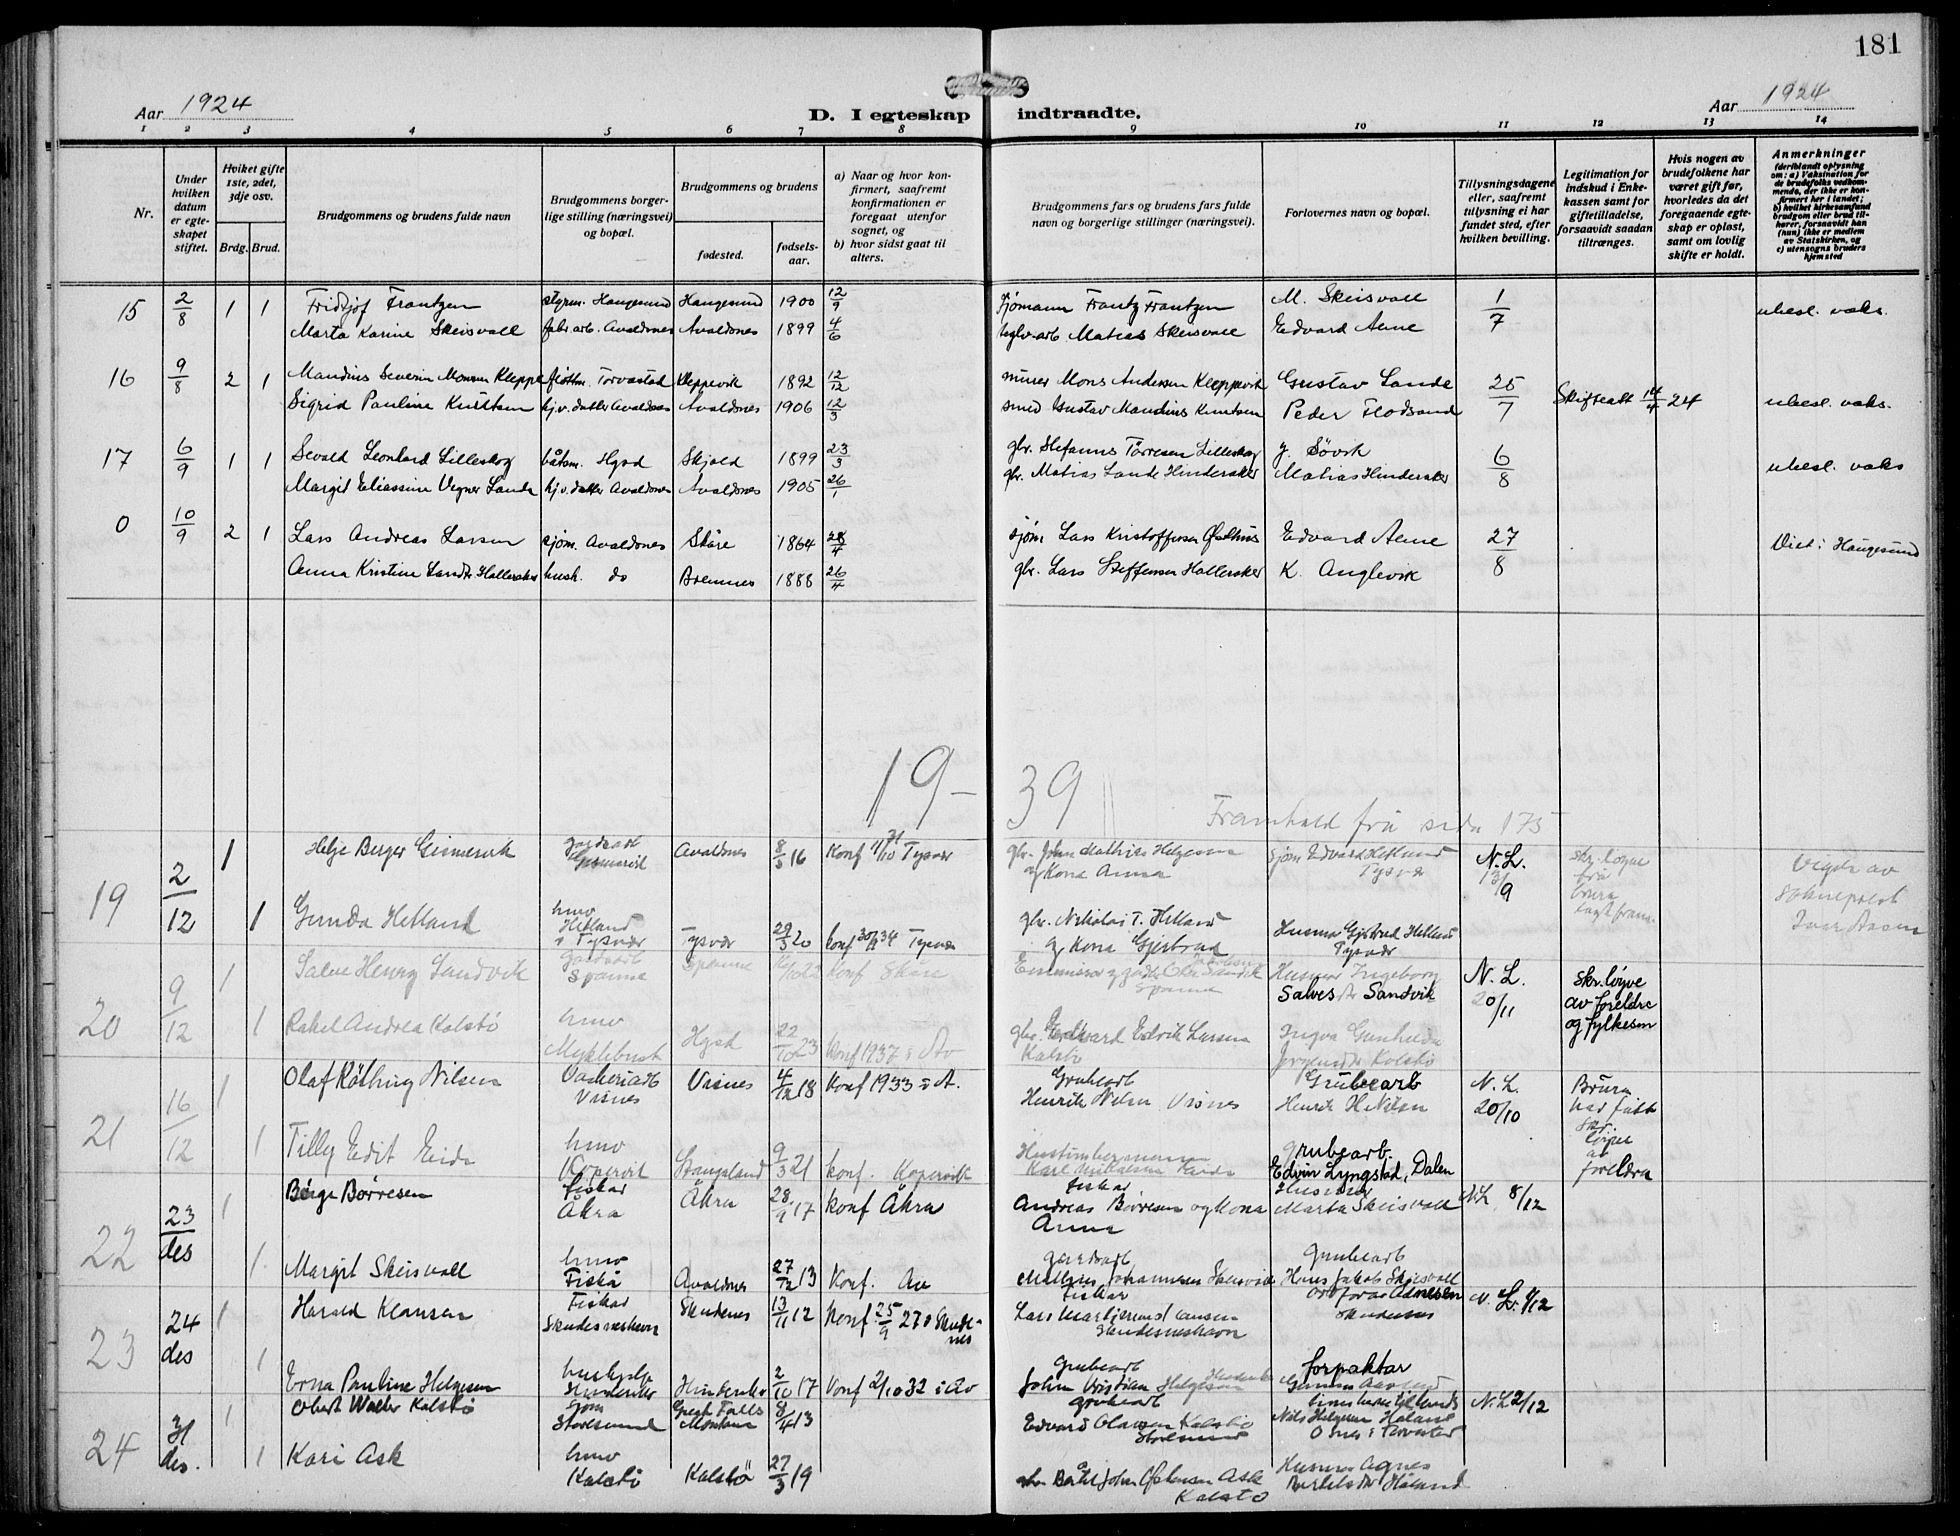 181
Aar 1924
D. I egteskap indtraadte.
Aar 1924
1 2 3 4 5 6 7 8 9 10 11 12 13 14
Nr.
Under hvilken datum er egteskapet stiftet.
Hvilket gifte 1ste, 2det, 3dje osv.
Brdg. Brud.
Brudgommens og brudens fulde navn
Brudgommens borgerlige stilling (næringsvei) og bopæl.
Brudgommens og brudens
fødested.
fødselsaar.
a) Naar og hvor konfirmert, saafremt konfirmationen er foregaat utenfor sognet, og
b) hvor sidst gaat til alters.
Brudgommens fars og brudens fars fulde navn og borgerlige stillinger (næringsvei).
Forlovernes navn og bopæl.
Tillysningsdagene eller, saafremt tillysning ei har fundet sted, efter hvilken bevilling.
Legitimation for indskud i Enkekassen samt for giftetilladelse, forsaavidt saadan tiltrænges.
Hvis nogen av brudefolkene har været gift før, hvorledes da det foregaaende egteskap er opløst, samt om lovlig skifte er holdt.
Anmerkninger
(deriblandt oplysning om: a) Vaksination for de brudefolks vedkommende, der ikke er konfirmert her i landet; b) hvilket kirkesamfund brudgom eller brud tilhører, forsaavidt han (hun) ikke er medlem av Statskirken, og c) utensogns bruders hjemsted
15 2/8 1 1 Fridtjof Frantzen styrm. Haugesund Haugesund 1900 12/9 sjømann Frantz Frantzen M. Skeisvoll 1/7 ubesl. vaks.
Marta Karine Skeisvoll fabr.arb. Avaldsnes Avaldsnes 1899 4/6 teglv.arb. Matias Skeisvoll Edvard Aene
16 9/8 2 1 Mandius Severin Monsen Kleppe fløttm. Torvastad Kleppevik 1892 12/12 murer Mons Andersen Kleppevik Gustav Lande 25/7 Skifteatt 14/4 24 ubesl. vaks.
Sigrid Pauline Knutsen hj.v. datter Avaldsnes Avaldsnes 1906 12/3 smed Gustav Mandius Knutsen Peder Flodsand
17 6/9 1 1 Sevald Leonhard Lilleskog båtsm. Hgsd Skjold 1899 23/3 gbr. Stefanus Tørresen Lilleskog J. Søvik 6/8 ubesl. vaks
Margit Eliassine Vegner Lande hj.v. datter Avaldsnes Avaldsnes 1905 26/1 gbr. Matias Lande Hinderaker Matias Hinderaker
0 10/9 2 1 Lars Andreas Larsen sjøm. Avaldsnes Skåre 1864 28/4 sjøm Lars Kristoffersen Østhus Edvard Aene 27/8 Viet i Haugesund
Anna Kristine Larsdtr Halleraker hush. do Bremnes 1888 26/4 gbr. Lars Steffensen Halleraker K. Anglevik
19 - 39
Framhald frå side 175
19 2/12 1 Helje Berger Gismervik gardsarb Gismervik Avaldsnes 8/5 16 Konf 1/10 31 Tysvær gbr. John Mathias Helgesen og Kona Anna sjøm Edvard Hetland Tysvær N.L. 13/9 skr. løyve frå brura Vigde av Sokneprest Ivar Aasen
1 Gunda Hetland hmo Hetland i Tysvær Tysvær 29/3 20 konf 34 Tysvær gbr. Nikolai T. Hetland og Kona Gjertrud Husmo Gjertrud Hetland Tysvær
20 9/12 1 Salve Henry Sandvik gardsarb Spanne Spanne 22 konf Skåre Ole Sandvik Spanne Husmor Ingeborg Salvesdtr Sandvik N.L. 20/11 Skr. løyve av foreldre og fylkesm
1 Rakel Andrea Kalstø hmo Myklebust Hgsd 22/10 23 Konf 1937 i Av gbr. Edvard Edvik Larsen Kalstø Ingva Gunhilda Jørgensdtr Kalstø
21 16/12 1 Olaf Röthing Nilsen Vaskeriarb Visnes Visnes 4/12 18 Konf 1933 i A. Grubearb Henrik Nilsen Visnes Grubearb Henrik H Nilsen N.L. 20/10 Brura har fått skr. løyve av foreldra
1 Tilly Edit Eide hmo Kopervik Stangeland 9/3 21 konf. Kopervik Hustimbermann Karl Mikalsen Eide grubearb. Edvin Lyngstad, Dalen
22 23/des 1 Børge Børresen fiskar Åkra Åkra 28/9 17 konf Åkra fiskar Andreas Børresen og Kona Anna Husmor Marta Skeisvoll N.L 8/12
1 Margit Skeisvoll hmo Fiskå Avaldsnes 27/12 13 Konf. Av gardsarb Mathias Johannesen Skeisvoll Grubearb Hans Jakob Skeisvoll
23 24 des 1 Harald Klausen Fiskar Skudesneshavn Skudenes 13/11 12 Konf. 25/9 27 i Skudenes fiskar Lars Klausen Skudesneshavn Adnesen Skudenes N.L. 4/12
1 Erna Pauline Helgesen hushjelp Hinderaker Hinderaker 2/10 17 Konf 2/10 32 i Av Grubearb John Kristian Helgesen Hinderaker forpaktar Gunnar
24 31 des. 1 Obert Walter Kalstø sjøm Storesund Great Falls Montana 8/4 13 Grubearb Edvard Olausen Kalstø Storesund Nils Helgesen Høland Osnes i Torvastad N.L 2/12
1 Kari Ask hmo Kalstø Kalstø 27/3 19 gbr. Bertel John Østensen Ask Kalstø Husmor Agnes Bertelsdtr Høland